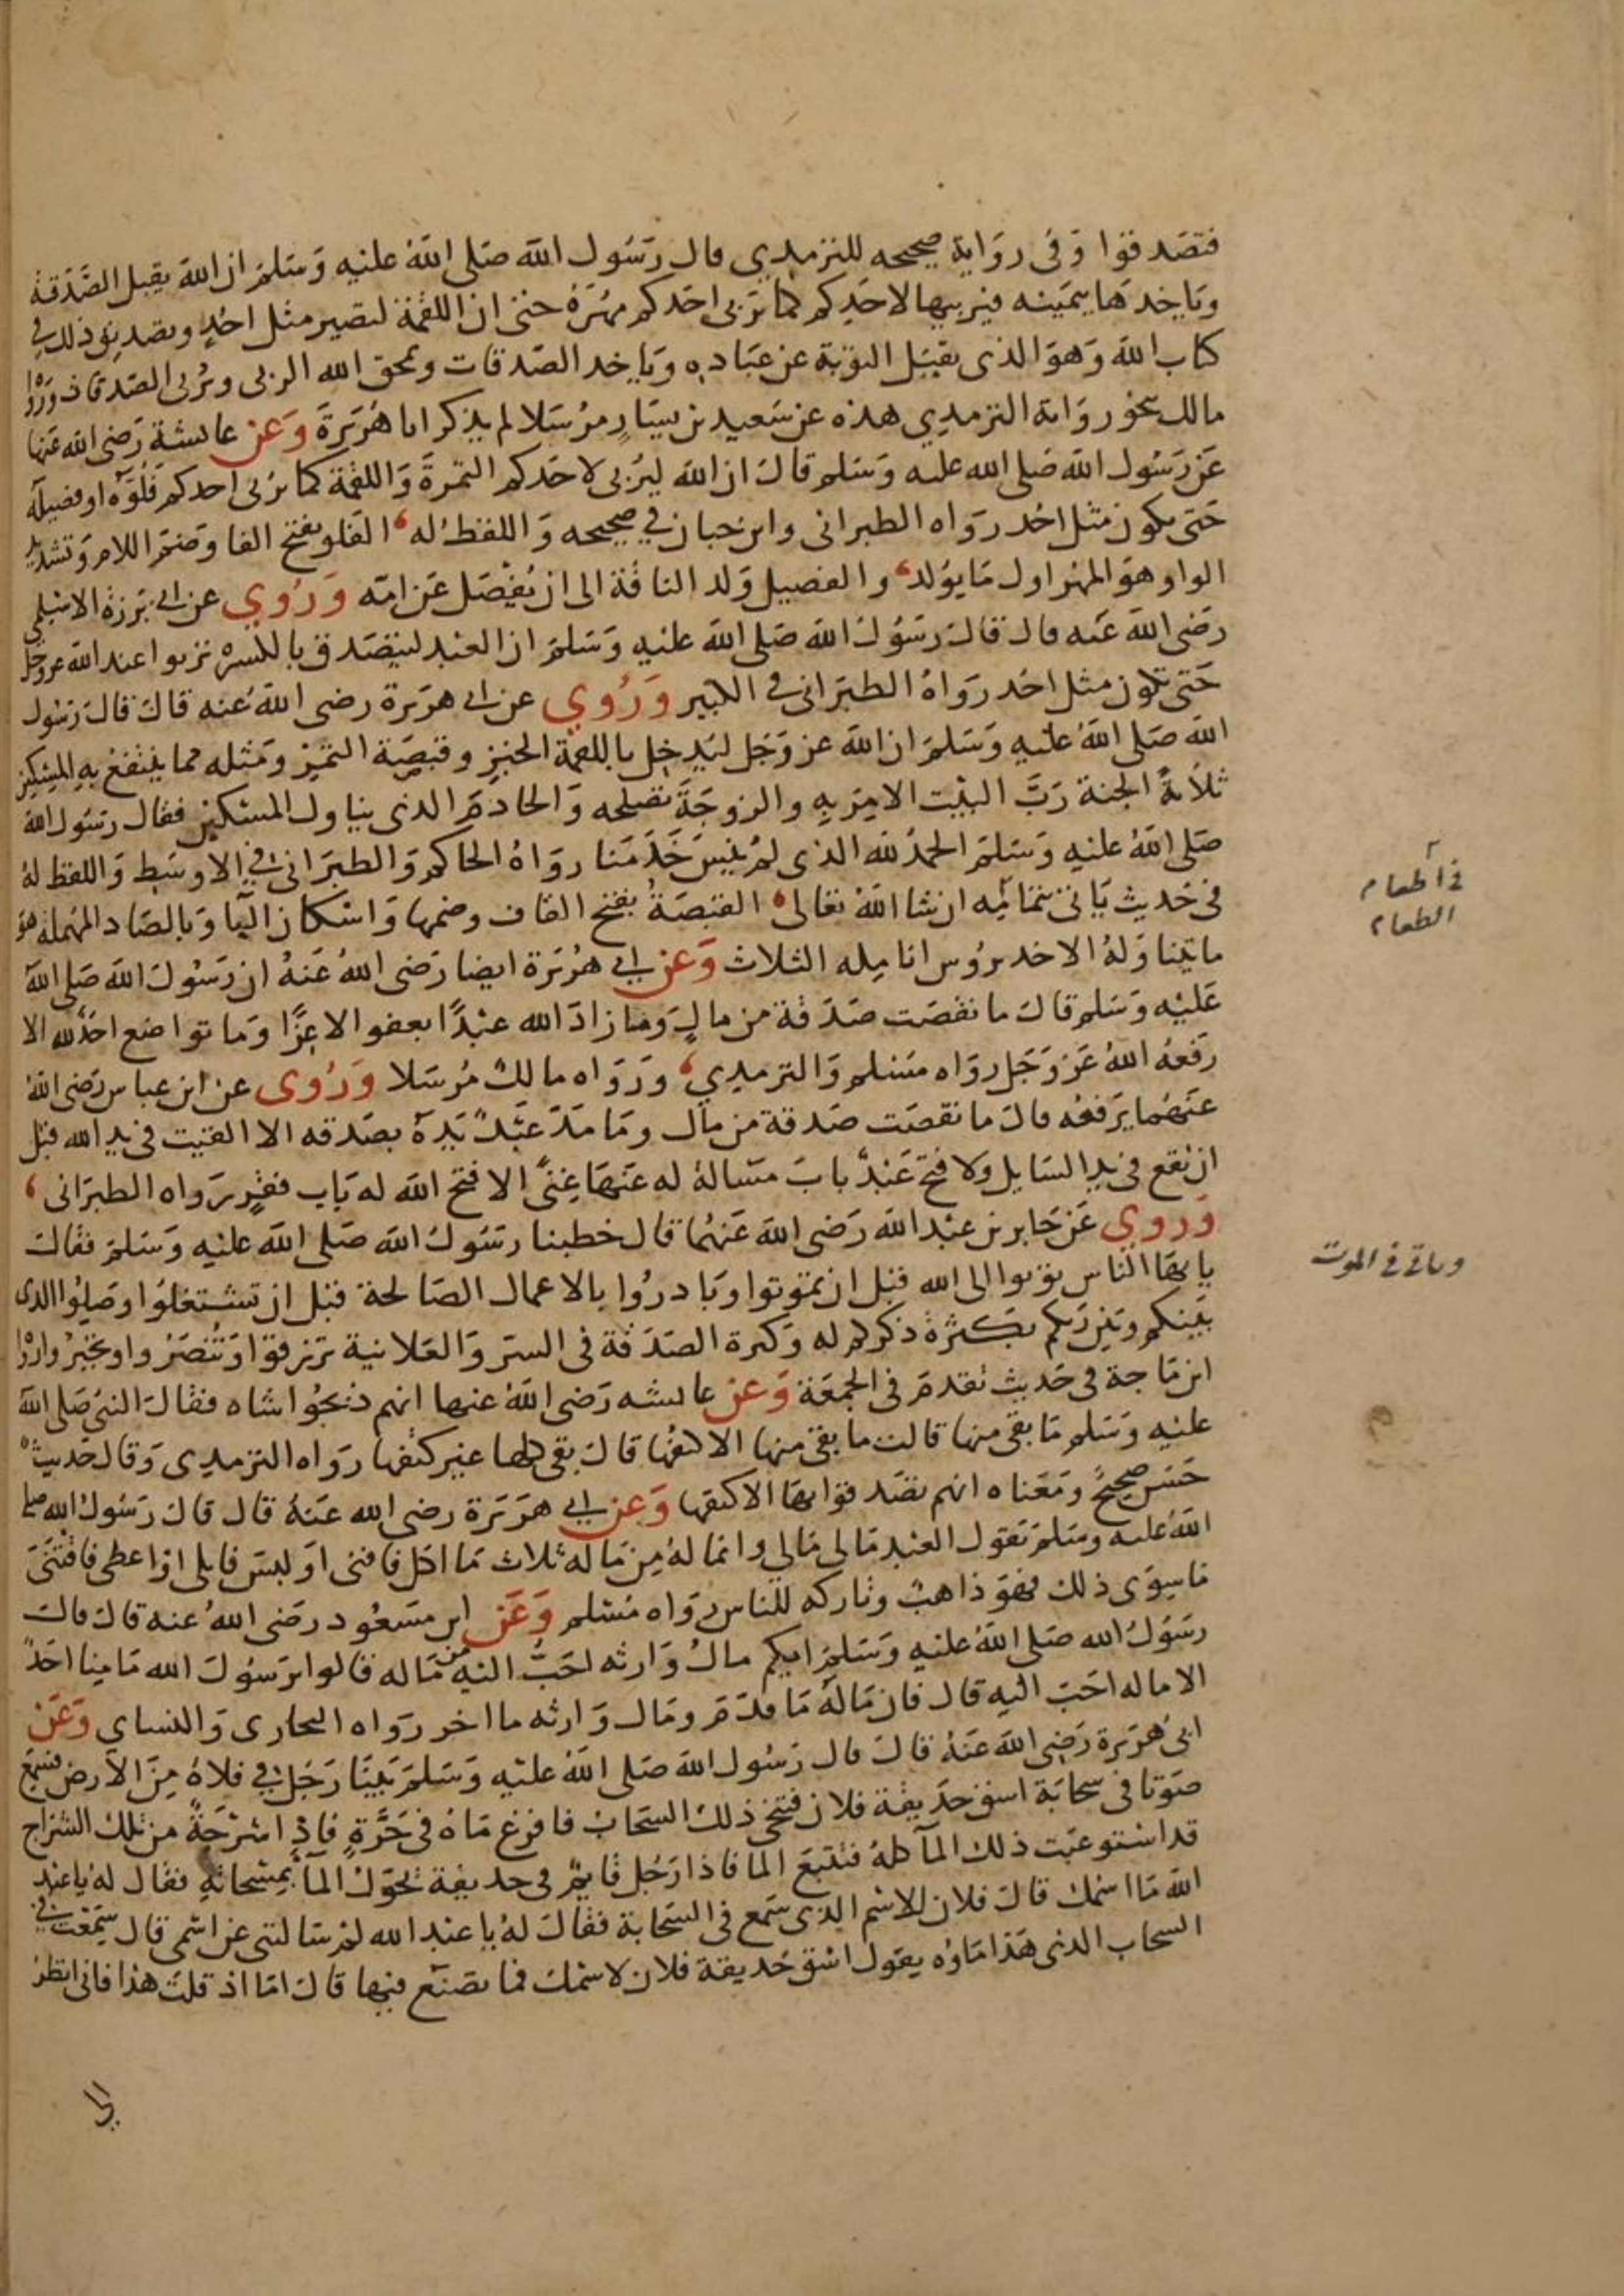 فتصدقوا وفى رواية صحيحه للترمدي قال رسول الله صلى الله عليه وسلم ان الله يقبل الصدقة
وياخدها بيمينه فيربيها لاحدكم كما يربى احدكم مهره حتى ان اللقمة لتصير مثل احد وتصديق ذلك في
كتاب الله وهو الذى يقبل التوبة عن عباده وياخد الصدقات ويمحق الله الربى ويربى الصدقات ورواه
مالك بنحو رواية الترمدي هذه عن سعيد بن يسار مرسلا لم يذكر ابا هريرة وعن عايشة رضى الله عنها
عن رسول الله صلى الله عليه وسلم قال ان الله ليربى لاحدكم التمرة واللقمة كما يربى احدكم فلوه او فصيله
حتى يكون مثل احد رواه الطبرانى وابن حبان في صحيحه واللفظ له الفلو بفتح الفا وضم اللام وتشديد
الواو هو المهر اول ما يولد والفصيل ولد الناقة الى ان يفصل عن امه وروي عن ابى برزة الاسلمي
رضى الله عنه قال قال رسول الله صلى الله عليه وسلم ان العبد ليتصدق بالكسرة تربوا عند الله عز وجل
حتى تكون مثل احد رواه الطبرانى في الكبير وروي عن ابى هريرة رضى الله عنه قال قال رسول
الله صلى الله عليه وسلم ان الله عز وجل ليدخل باللقمة الخبز وقبصة التمر ومثله مما ينتفع به المسكين
ثلاثة الجنة رب البيت الامر به والزوجة تصلحه والخادم الذى يناول المسكين فقال رسول الله
صلى الله عليه وسلم الحمد لله الذى لم ينس خدمنا رواه الحاكم والطبرانى في الاوسط واللفظ له
فى حديث ياتى بتمامه ان شا الله تعالى القبصة بفتح القاف وضمها واسكان البا وبالصاد المهملة هو
ما يتناوله الاخد برؤس انامله الثلاث وعن ابى هريرة ايضا رضى الله عنه ان رسول الله صلى الله
عليه وسلم قال ما نقصت صدقة من مال وما زاد الله عبدا بعفو الا عزا وما تواضع احد لله الا
رفعه الله عز وجل رواه مسلم والترمدي ورواه مالك مرسلا وروى عن ابن عباس رضى الله
عنهما يرفعه قال ما نقصت صدقة من مال وما مد عبد يده بصدقه الا القيت فى يد الله قبل
ان تقع فى يد السايل ولا فتح عبد باب مسالة له عنها غنى الا فتح الله له باب فقر رواه الطبرانى
وروي عن جابر بن عبد الله رضى الله عنهما قال خطبنا رسول الله صلى الله عليه وسلم فقال
يا يها الناس توبوا الى الله قبل ان تموتوا وبادروا بالاعمال الصالحة قبل ان تشتغلوا وصلوا الدى
بينكم وبين ربكم بكثرة ذكركم له وكثرة الصدقة فى السر والعلانية ترزقوا وتنصروا وتجبروا رواه
ابن ماجة فى حديث تقدم فى الجمعة وعن عايشه رضى الله عنها انهم ذبحوا شاه فقال النبى صلى الله
عليه وسلم ما بقى منها قالت ما بقى منها الا كتفها قال بقى كلها غير كتفها رواه الترمدى وقال حديث
حسن صحيح ومعناه انهم تصدقوا بها الا كتفها وعن ابي هريرة رضى الله عنه قال قال رسول الله صلى
الله عليه وسلم يقول العبد مالى مالي وانما له من ماله ثلاث ما اكل فافنى او لبس فابلى او اعطى فاقتنى
ما سوى ذلك فهو ذاهب وتاركه للناس رواه مسلم وعن ابن مسعود رضى الله عنه قال قال
رسول الله صلى الله عليه وسلم ايكم مال وارثه احب اليه من ماله قالوا يرسول الله ما منا احد
الا ماله احب اليه قال فان ماله ما قدم ومال وارثه ما اخر رواه البخارى والنساي وعن
ابى هريرة رضى الله عنه قال قال رسول الله صلى الله عليه وسلم بينا رجل في فلاة من الارض فسمع
صوتا فى سحابة اسق حديقة فلان فتنحى ذلك السحاب فافرغ ماه فى حرة فاذا شرجة من تلك الشراج
قد استوعبت ذلك المآ كله فتتبع الما فاذا رجل قايم فى حديقة يحول المآ بمسحاته فقال له يا عبد
الله ما اسمك قال فلان للاسم الذى سمع فى السحابة فقال له يا عبد الله لم سالتنى عن اسمى قال سمعت في
السحاب الذى هذا ماوه يقول اسق حديقة فلان لاسمك فما تصنع فيها قال اما اذ قلت هذا فانى انظر
فى اطعام
الطعام
وياتى فى الموت